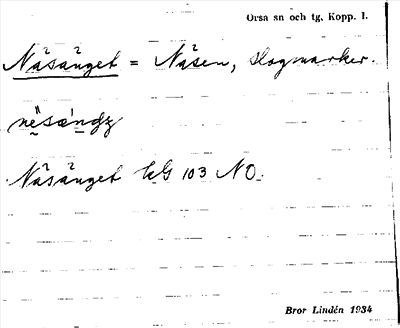 Orsa sn och tg. Kopp. l.
Näsänget = Näsen, slogmarker.
Näsänget kG 103 NO.
Bror Lindén 1934